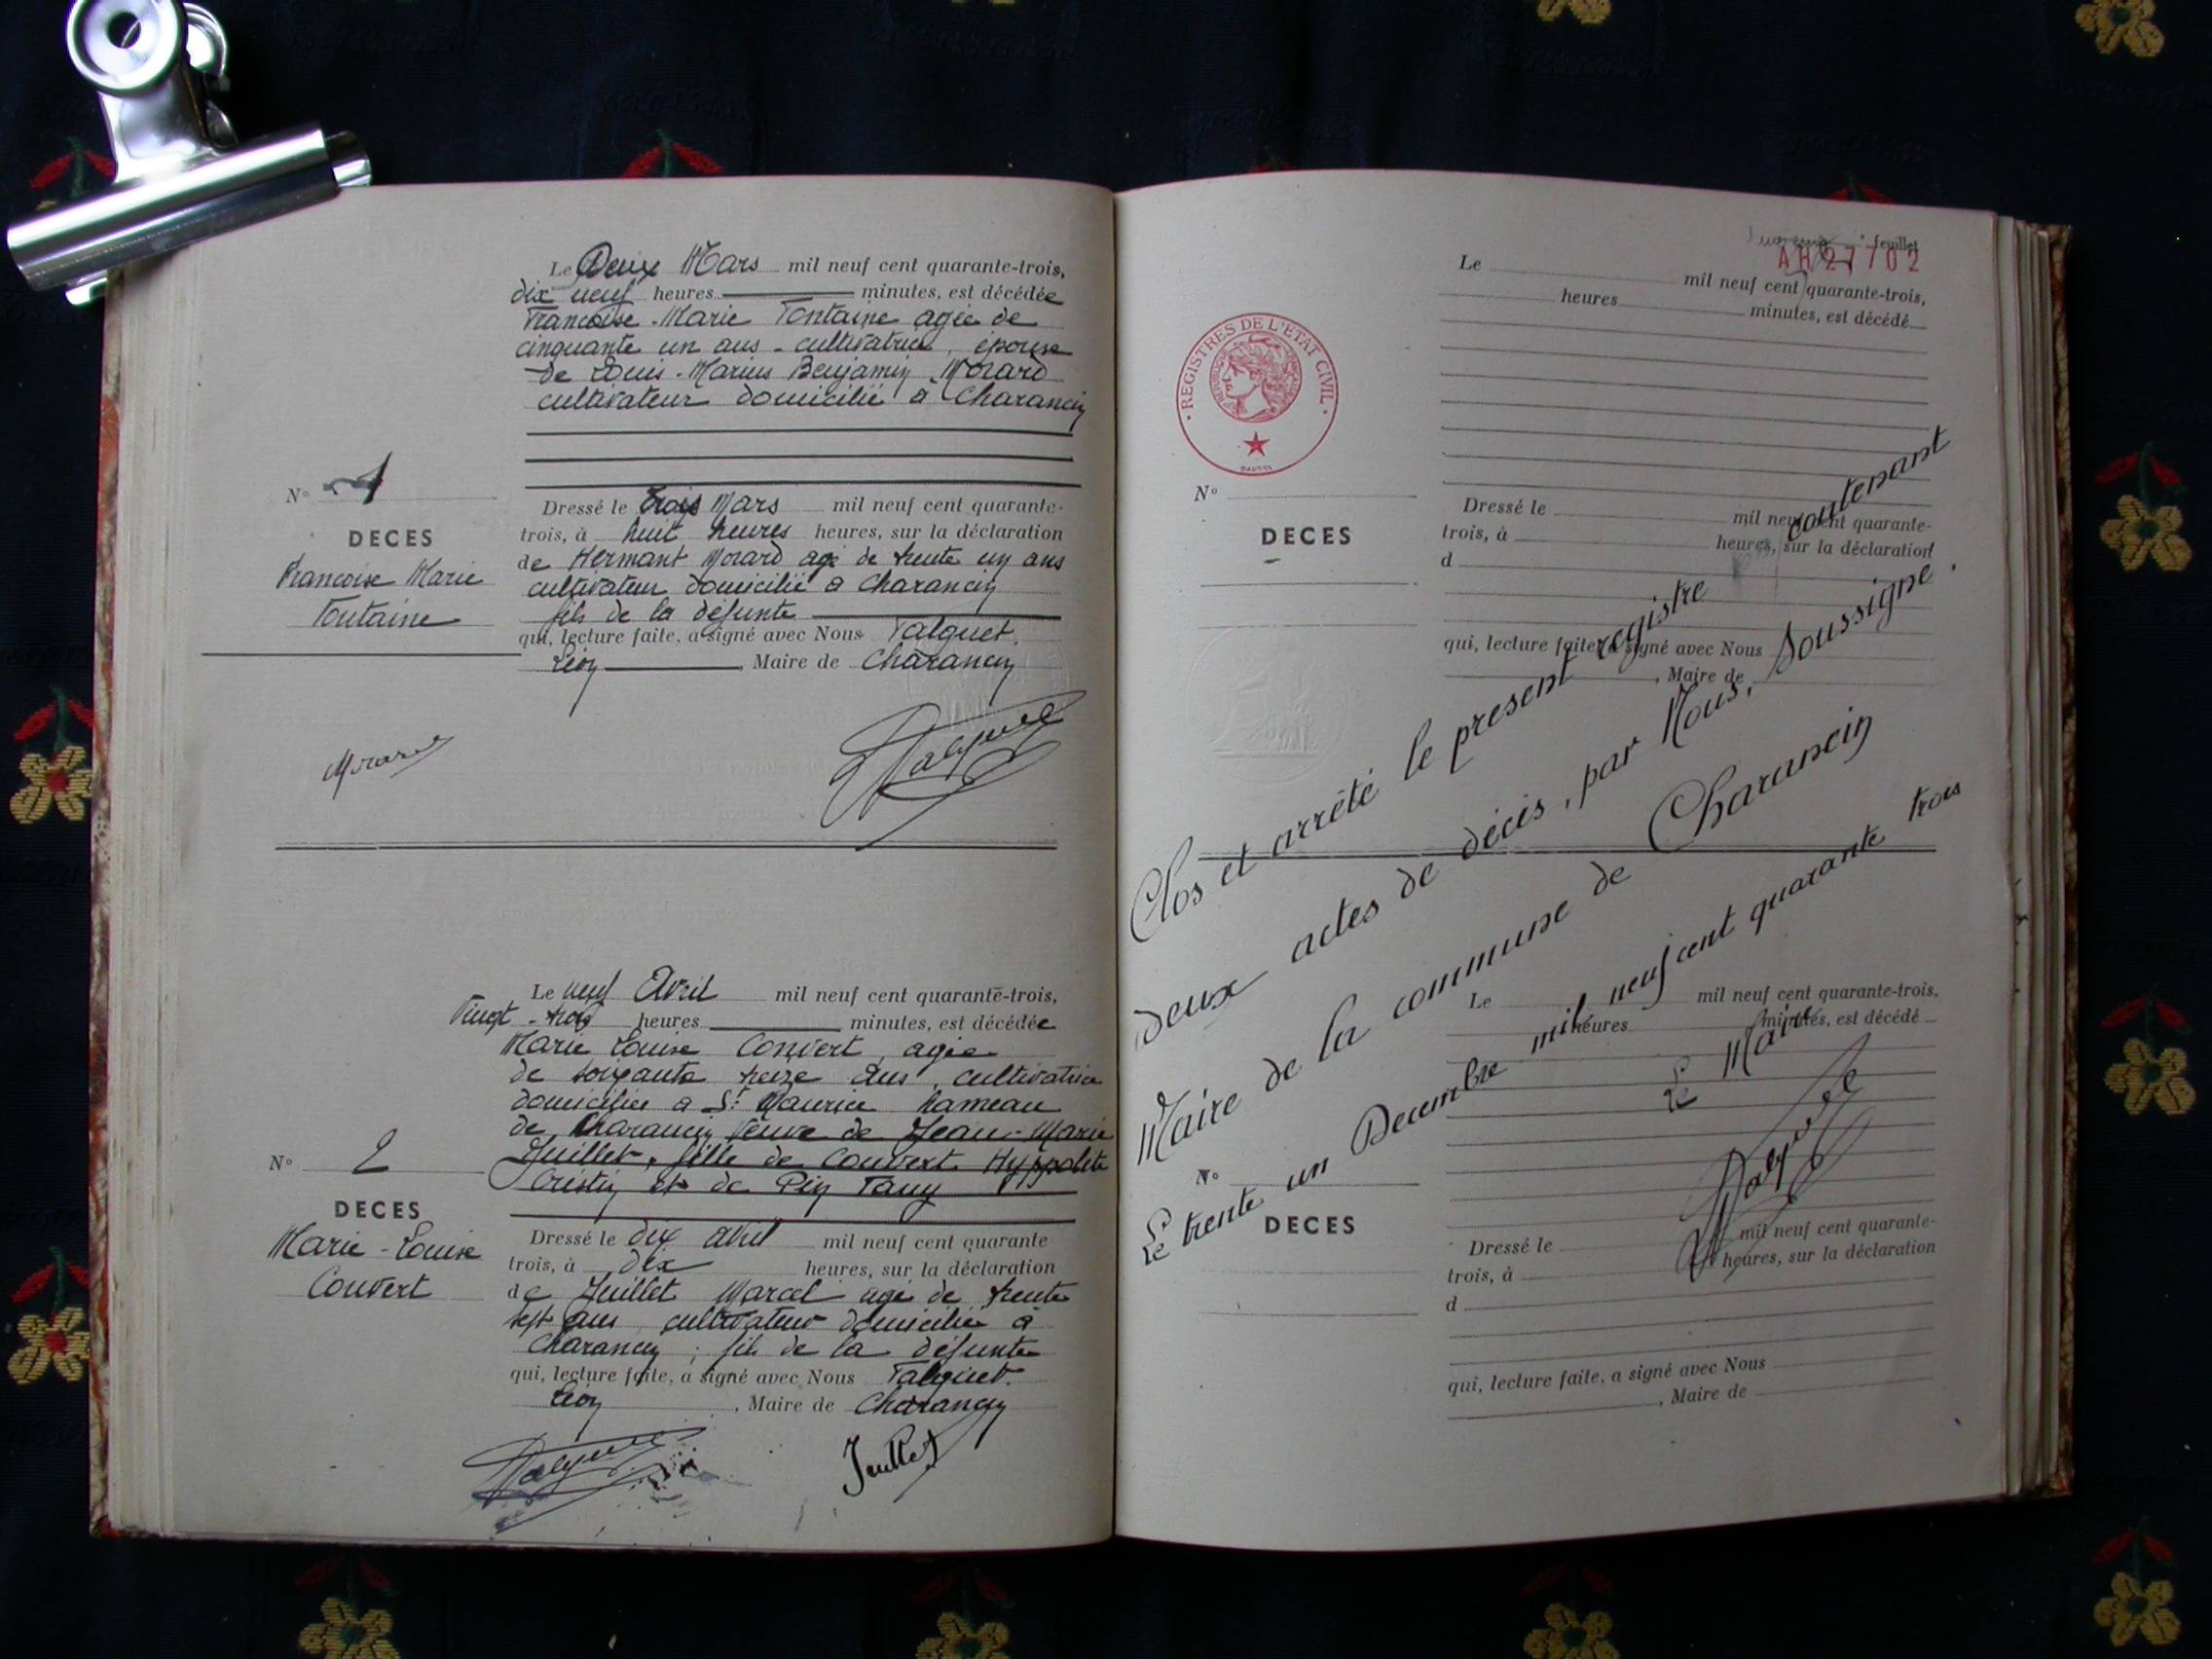 Le Deux Mars mil neuf cent quarante-trois,
dix neuf heures minutes, est décédée
Francoise-Marie Fontaine agée de
cinquante un ans - cultivatrice, épouse
de Louis-Marius Benjamin Morard
cultivateur domicilié à Charancin
N° 1
DECES
Francoise Marie
Fontaine
Dressé le trois Mars mil neuf cent quarante-
trois, à huit heures heures, sur la déclaration
de Hermant Morard agé de trente un ans
cultivateur domicilié à Charancin
fils de la défunte
qui, lecture faite, a signé avec Nous Falquet
Léon, Maire de Charancin
Morard
Falquet
Le neuf Avril mil neuf cent quarante-trois,
Vingt-trois heures minutes, est décédée
Marie Louise Convert, agée
de soixante treize ans, cultivatrice
domiciliée à St Maurice hameau
de Charancin Veuve de Jean-Marie
Juillet, fille de Convert Hyppolite
et de Pin Fany
N° 2
DECES
Marie-Louise
Convert
Dressé le dix avril mil neuf cent quarante
trois, à dix heures, sur la déclaration
de Juillet Marcel agé de trente
sept ans cultivateur domicilié à
Charancin, fils de la défunte
qui, lecture faite, a signé avec Nous Falquet.
Léon, Maire de Charancin
Falquet
Juillet
feuillet
AH 27702
Le mil neuf cent quarante-trois,
heures minutes, est décédé
REGISTRES DE L'ETAT CIVIL
N°
DECES
Dressé le mil neuf cent quarante-
trois, à heures, sur la déclaration
d
qui, lecture faite, a signé avec Nous
, Maire de
Clos et arrêté le présent registre contenant
deux actes de décès, par Nous, Soussigné.
Maire de la commune de Charancin
Le trente un Decembre mil neuf cent quarante trois
Le Maire
Falquet
Le mil neuf cent quarante-trois,
heures minutes, est décédé
N°
DECES
Dressé le mil neuf cent quarante-
trois, à heures, sur la déclaration
d
qui, lecture faite, a signé avec Nous
, Maire de